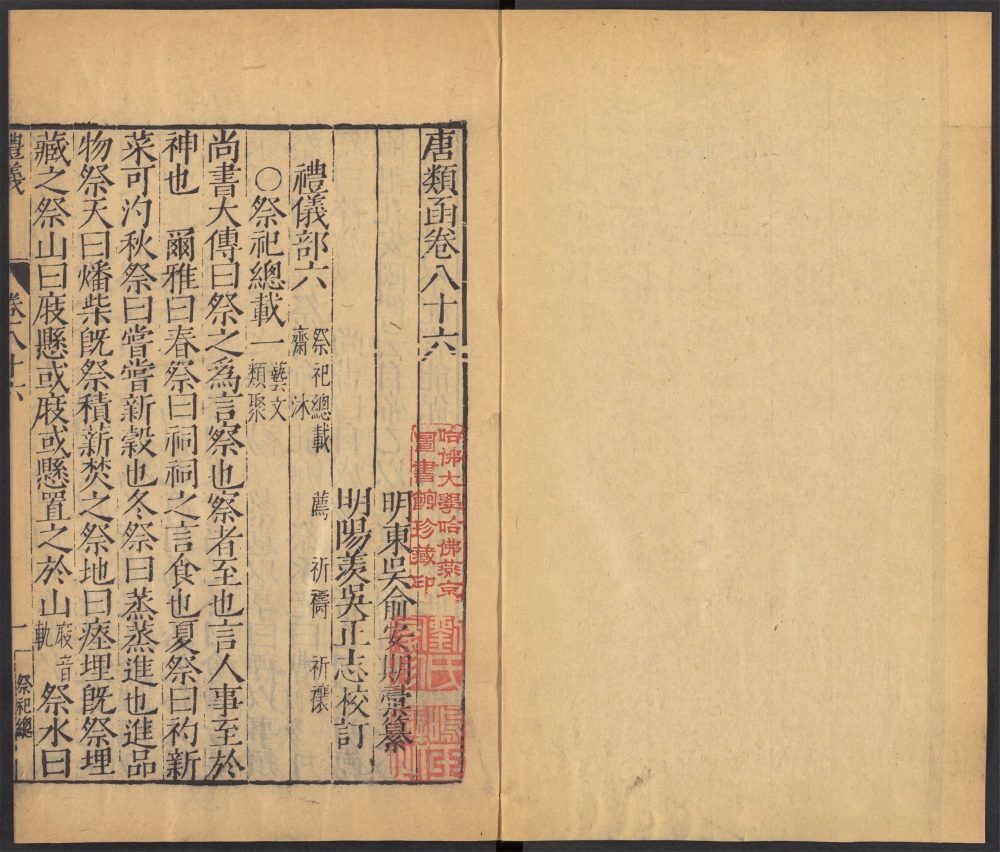 唐類函卷八十六
明東吳俞安期彙纂
明陽羨吳正志校訂
禮儀部六 祭祀總載 薦 祈禱 祈禳 齋 沐
○祭祀總載一 藝文類聚
尚書大傳曰祭之爲言察也察者至也言人事至於
神也 爾雅曰春祭曰祠祠之言食也夏祭曰礿新
菜可汋秋祭曰嘗嘗新穀也冬祭曰蒸蒸進也進品
物祭天曰燔柴旣祭積薪焚之祭地曰瘞埋旣祭埋
藏之祭山曰庪懸或庪或懸置之於山庪音軌祭水曰
禮義 卷八十六 一 祭祀總
哈佛大學哈佛燕京
圖書館珍藏印